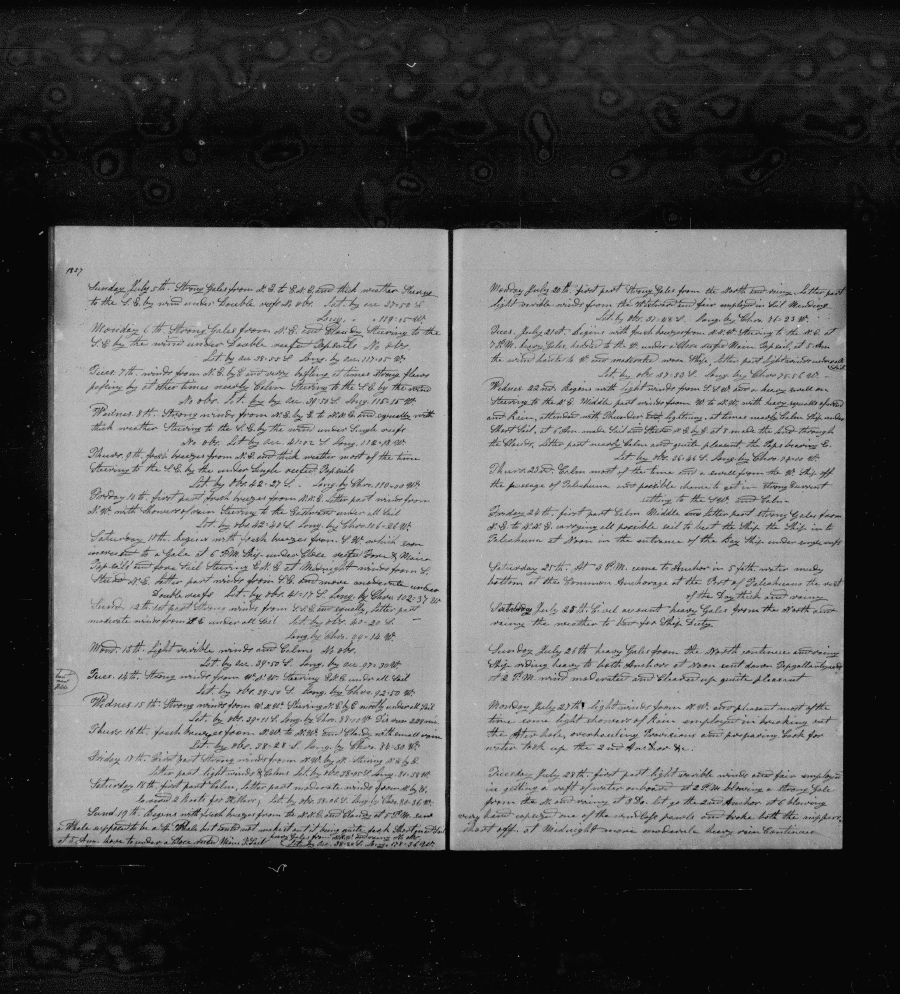 1857
Sunday July 5th. Strong Gales from N.E. to E.N.E. and thick weather Steering
to the S.E. by wind under Double reefs No obs. Lat. by acc 37-50 S.
Long. " " 119-15 W.
Monday 6th Strong Gales from N.E. and Cloudy Steering to the
S.E. by the wind under Double reefed Topsails No obs.
Lat by acc 38-55 S. Long. by acc. 117-15 W.
Tues. 7th. winds from N.E. by E and very baffling at times Strong flaws
passing by at other times nearly Calm Steering to the S.E. by the wind
No obs. Lat. by acc. 39-50 S. Long. 115-55 W.
Wednes. 8th. Strong winds from N.E. by E to N.E. and squally with
thick weather Steering to the S.E. by the wind under Single reefs
No obs. Lat by acc. 41-02 S. Long. 112-13 W.
Thurs. 9th fresh breezes from N.E. and thick weather most of the time
Steering to the S.E. by the under Single reefed Topsails
Lat by Obs 42-27 S. Long by Chro. 110-00 W.
Friday 10th first part fresh breezes from N.E. latter part winds from
N.W. with Showers of rain Steering to the Eastward under all Sail
Lat. by obs 42-40 S. Long. by Chro. 106-26 W.
Saturday 11th. begins with fresh breezes from S.W. which soon
increased to a Gale at 6 P.M. Ship under Close reefed Fore & Main
Topsails and fore sail Steering E.N.E. at Midnight winds from S.
Steered N.E. latter part winds from S.E. and more moderate under
Double reefs Lat. by obs 41-17 S. Long. by Chro. 102-37 W.
Sund. 12th 1st part Strong winds from S.S.E. and squally, latter part
moderate winds from S.E. under all Sail Lat. by obs. 40-20 S.
Long by Chro. 99-14 W.
Mond. 13th. Light varible winds and Calms No obs.
Lat. by acc. 39-50 S. Long. by acc. 97-30 W.
Tues. 14th. Strong winds from W.N.W. Steering E.N.E. under all Sail
Lat. by obs. 39-50 S. Long. by Chro. 92-50 W.
Wednes. 15th. Strong winds from W.N.W. Steering N.E. by E. mostly under all Sail
Lat. by obs. 39-11 S. Long. by Chro. 88-00 W.
Thurs. 16th. fresh breezes from N.W. to N.W. and Cloudy with small rain
Lat. by obs. 38-28 S. Long. by Chro. 84-30 W.
Friday 17th. First part Strong winds from N.W. by N. Steering N.E. by E.
latter part light winds & Calms Lat. by obs. 38-05 S. Long. 81-58 W.
Saturday 18th. first part Calm, latter part moderate winds from N. by W.
Lat. by obs. 38-06 S. Long. by Chro. 80-36 W.
Sund. 19th. begins with fresh breezes from the N.N.E. and Cloudy at 5 P.M. saw
a Whale supposed to be a Sp. Whale but could not make it out it being quite dark
Lat by acc. 38-20 S. Long. 78-36 W.
Monday July 20th. first part Strong Gales from the North and rainy. latter part
light varible winds from the Westward and fair employed in Sail Mending
Lat. by Obs. 37-48 S. Long. by Chro. 76-23 W.
Tues. July 21st. begins with fresh breezes from N.N.W. Steering to the N.E. at
7 P.M. heavy Gales, headed to the W. under a Close reefed Main Topsail, at 5 Am
the wind hauled to W. and moderated wore Ship. latter part light winds under all
sail
Lat. by obs 37-50 S. Long by Chro 75-56 W.
Wednes. 22nd. Begins with light winds from S.S.W. and a heavy swell on
Steering to the N.E. Middle part winds from W. to N.W. with heavy squalls of wind
and Rain, attended with Thunder and lightning, at times nearly Calm Ship under
Short Sail, at 6 Am made Sail and Steered N.E. by E. at 8 made the land through
the Clouds, latter part nearly Calm and quite pleasant the Paps bearing E.
Lat. by Obs. 36-46 S. Long by Chro.
Thurs. 23rd. Calm most of the time and a swell from the W. Ship off
the passage of Talcahuna no possible chance to get in strong Current
setting to the S.W. and Calm
Friday 24th. first part Calm Middle and latter part strong Gales from
N.E. to N.N.E. carrying all possible sail to beat the Ship the Ship in to
Talcahuna at Noon in the entrance of the Bay Ship under single reefs
Saturday 25th. At 4 P.M. came to Anchor in 5 fath. water muddy
bottom at the Common Anchorage at the Port of Talcahuna the rest
of the Day thick and rainy
Saturday July 25th Civil account heavy Gales from the North and
rainy the weather to bad for Ship Duty.
Sunday July 26th heavy Gales from the North continues and rainy
Ship riding heavy to both Anchors at Noon sent down Topgallant yards
at 2 P.M. wind moderated and Cleared up quite pleasant
Monday July 27th light winds from N.W. and pleasant most of the
time some light showers of Rain employed in breaking out
the After hole, overhauling Provisions and preparing Cask for
water took up the 2nd Anchor &c.
Tuesday July 28th. first part light varible winds and fair employed
in getting a raft of water onboard at 2 P.M. blowing a strong Gale
from the N. and rainy at 3 Do. let go the 2nd Anchor at 6 blowing
very hard capsized one of the windlass pawls and broke both the nippers
short off. at Midnight more moderate heavy rain Continues